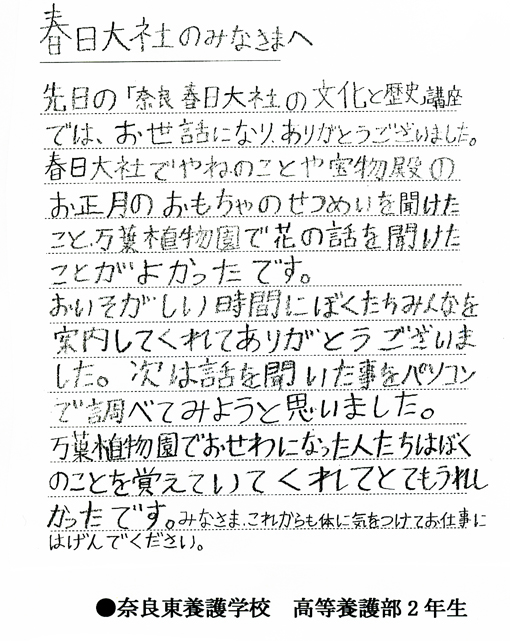 春日大社のみなさまへ
先日の「奈良 春日大社の文化と歴史」講座
では、お世話になり、ありがとうございました。
春日大社でやねのことや宝物殿の
お正月のおもちゃのせつめいを聞けた
こと、万葉植物園で花の話を聞けた
ことがよかったです。
おいそがしい時間にぼくたちみんなを
案内してくれてありがとうございま
した。次は話を聞いた事をパソコン
で調べてみようと思いました。
万葉植物園でおせわになった人たちはぼく
のことを覚えていてくれてとてもうれし
かったです。みなさま、これからも体に気をつけてお仕事に
はげんでください。
●奈良東養護学校　高等養護部2年生